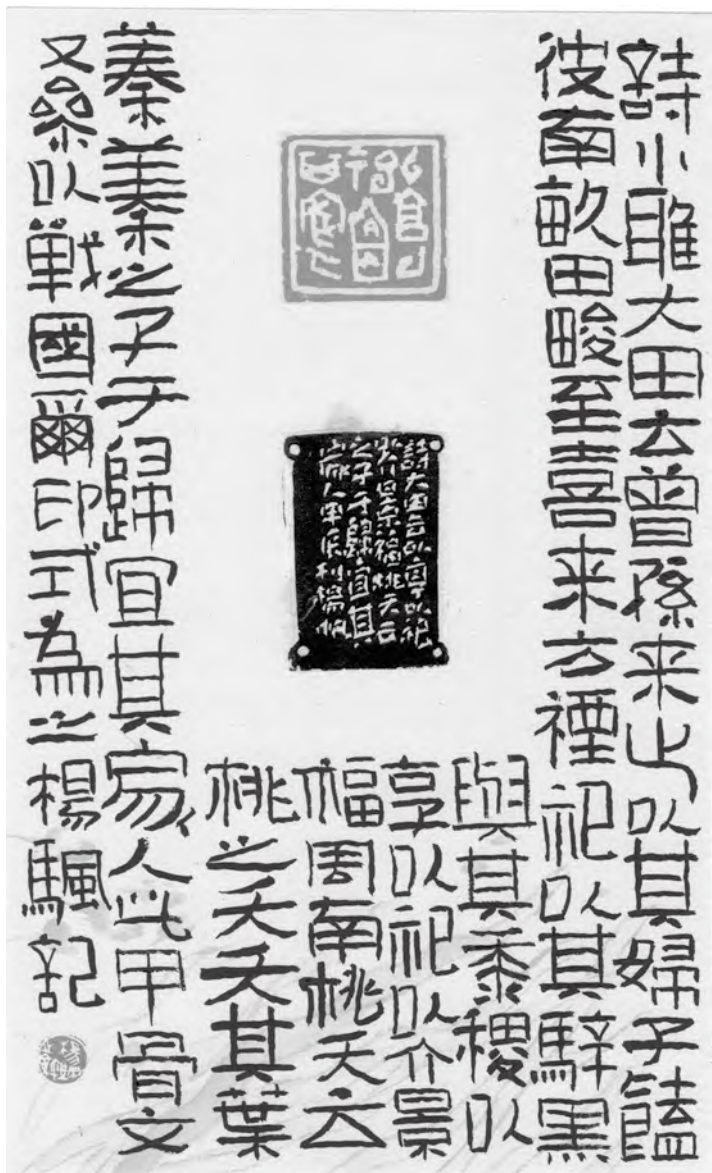 詩小雅大田云曾孫来止以其婦子饁
彼南畝田畯至喜来方禋祀以其騂黑
與其黍稷以
享以祀以介景
福周南桃夭云
桃之夭夭其葉
蓁蓁之子于歸宜其家人此甲骨文
又參以戰國爾印式為之楊颿記
詩大田云以享以祀
以介景福桃夭云
之子于歸宜其
家人